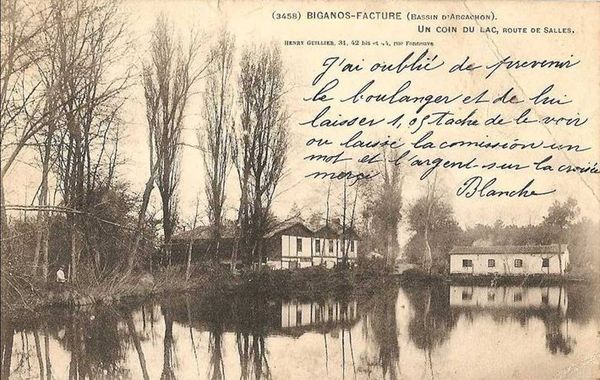 (3458) BIGANOS-FACTURE (BASSIN D'ARCACHON).
UN COIN DU LAC, ROUTE DE SALLES.
HENRY GUILLIER, 31, 42 bis et 44, rue Fonneuve
J'ai oublié de prevenir
le boulanger et de lui
laisser 1,05 tache de le voir
ou laisse la comission un
mot et l'argent sur la croisée
merci
Blanche